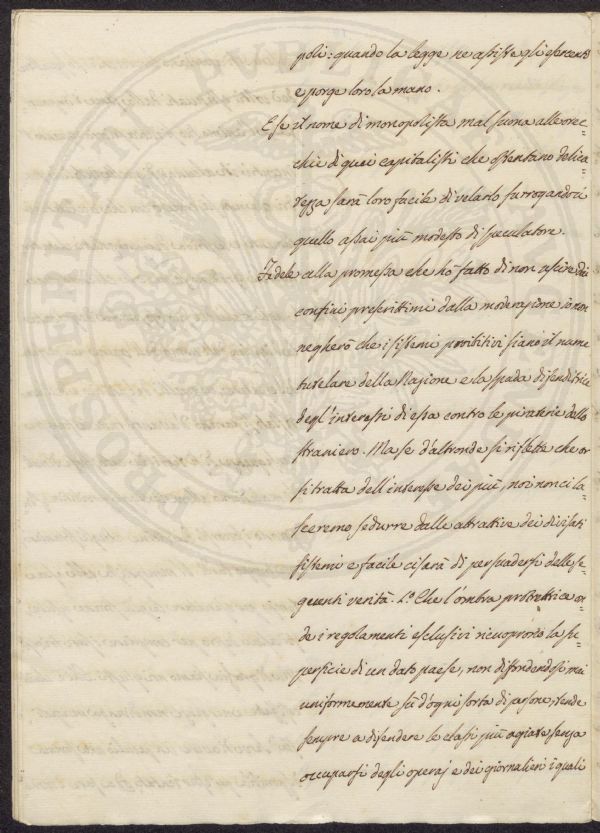 poli: quando la legge ne assiste gli esercenti
e porge loro la mano.
E se il nome di monopolista mal suona alle orec-
chie di quei capitalisti che ostentano delica-
tezza sarà loro facile di velarlo surrogandoci
quello assai più modesto di speculatore.
Fedele alla promessa che hò fatto di non uscire dai
confini prescrittimi dalla moderazione io non
negherò che i sistemi proibitivi siano il nume
tutelare della Nazione e la spada difenditrice
degl'interessi di essa contro le piraterie dello
straniero. Ma se d'altronde si riflette che or
si tratta dell'interesse dei più, noi non ci la-
sceremo sedurre dalle attrattive dei divisati
sistemi e facile ci sarà di persuadersi delle se-
guenti verità. 1.º Che l'ombra protettrice on-
de i regolamenti esclusivi ricuoprono la su-
perficie di un dato paese, non diffondendosi mai
uniformemente sù d'ogni sorta di persone, tende
sempre a difendere le classi più agiate senza
occuparsi degli operaj e dei giornalieri i quali
PROSPERITATI PUBLICAE